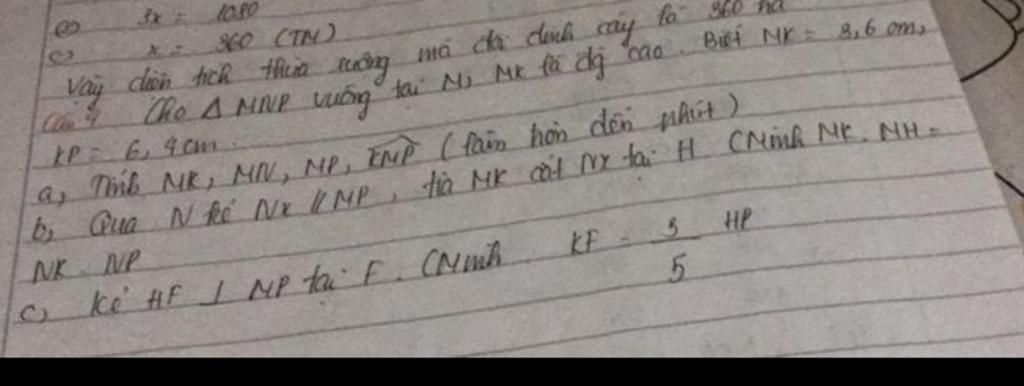 (=) 3x = 1080
(=) x = 360 (TM)
Vậy diện tích thửa ruộng mà đã định cấy là 360 ha
Câu 4 Cho Δ MNP vuông tại M, MK là đg cao. Biết NK = 3,6 cm,
KP = 6,4cm.
a, Tính MK, MN, MP, KMP (làm tròn đến phút)
b, Qua N kẻ Nx // MP, tia MK cắt Nx tại H CMinh MK. NH =
NK. NP
c, Kẻ HF ⊥ MP tại F. CMinh KF = 3/5 HP